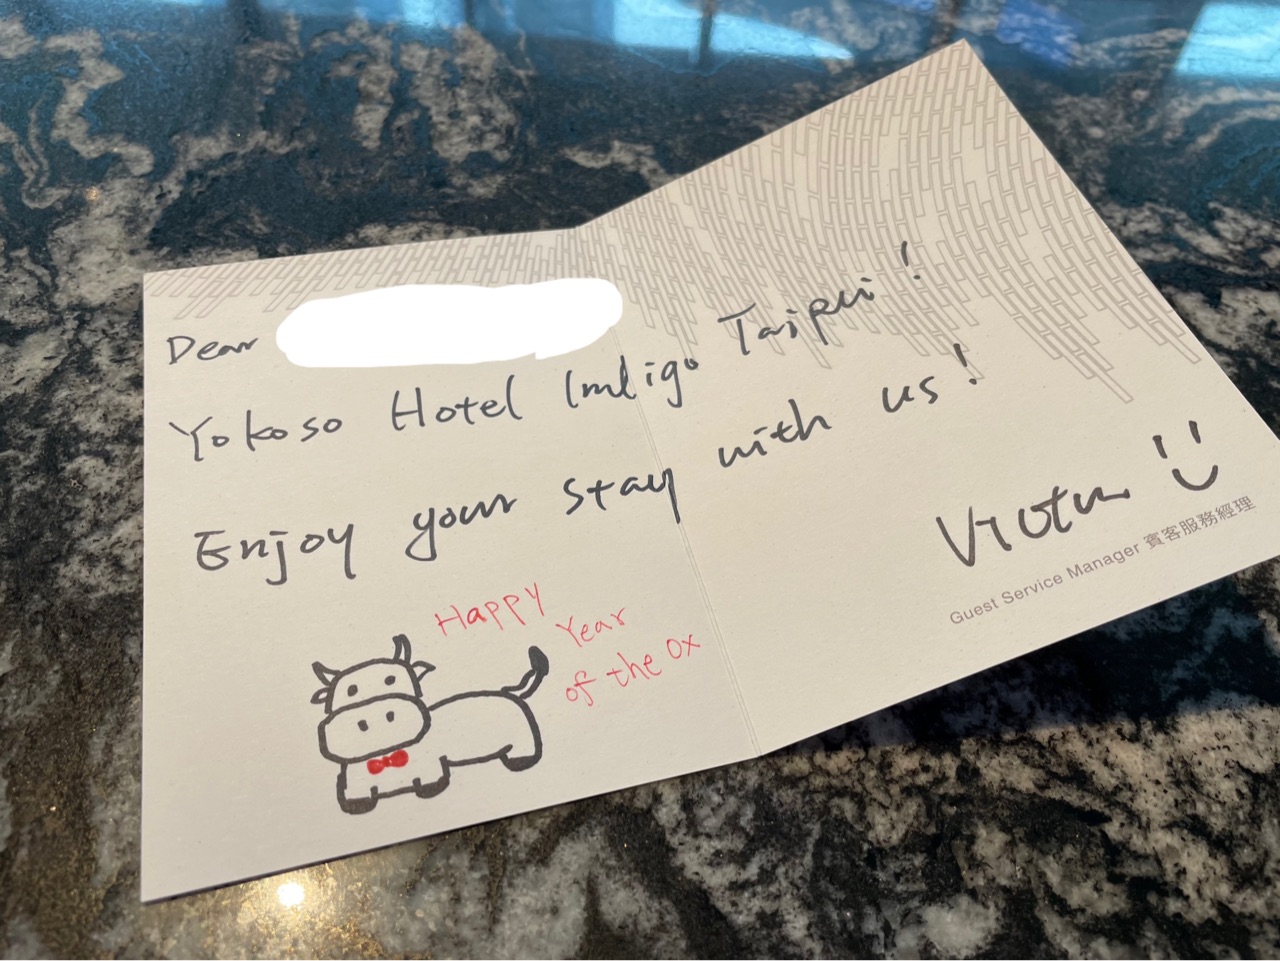 Dear
Yokoso Hotel Indigo Taipei!
Enjoy your stay with us!
Victor
Guest Service Manager 賓客服務經理
Happy
Year
of the Ox